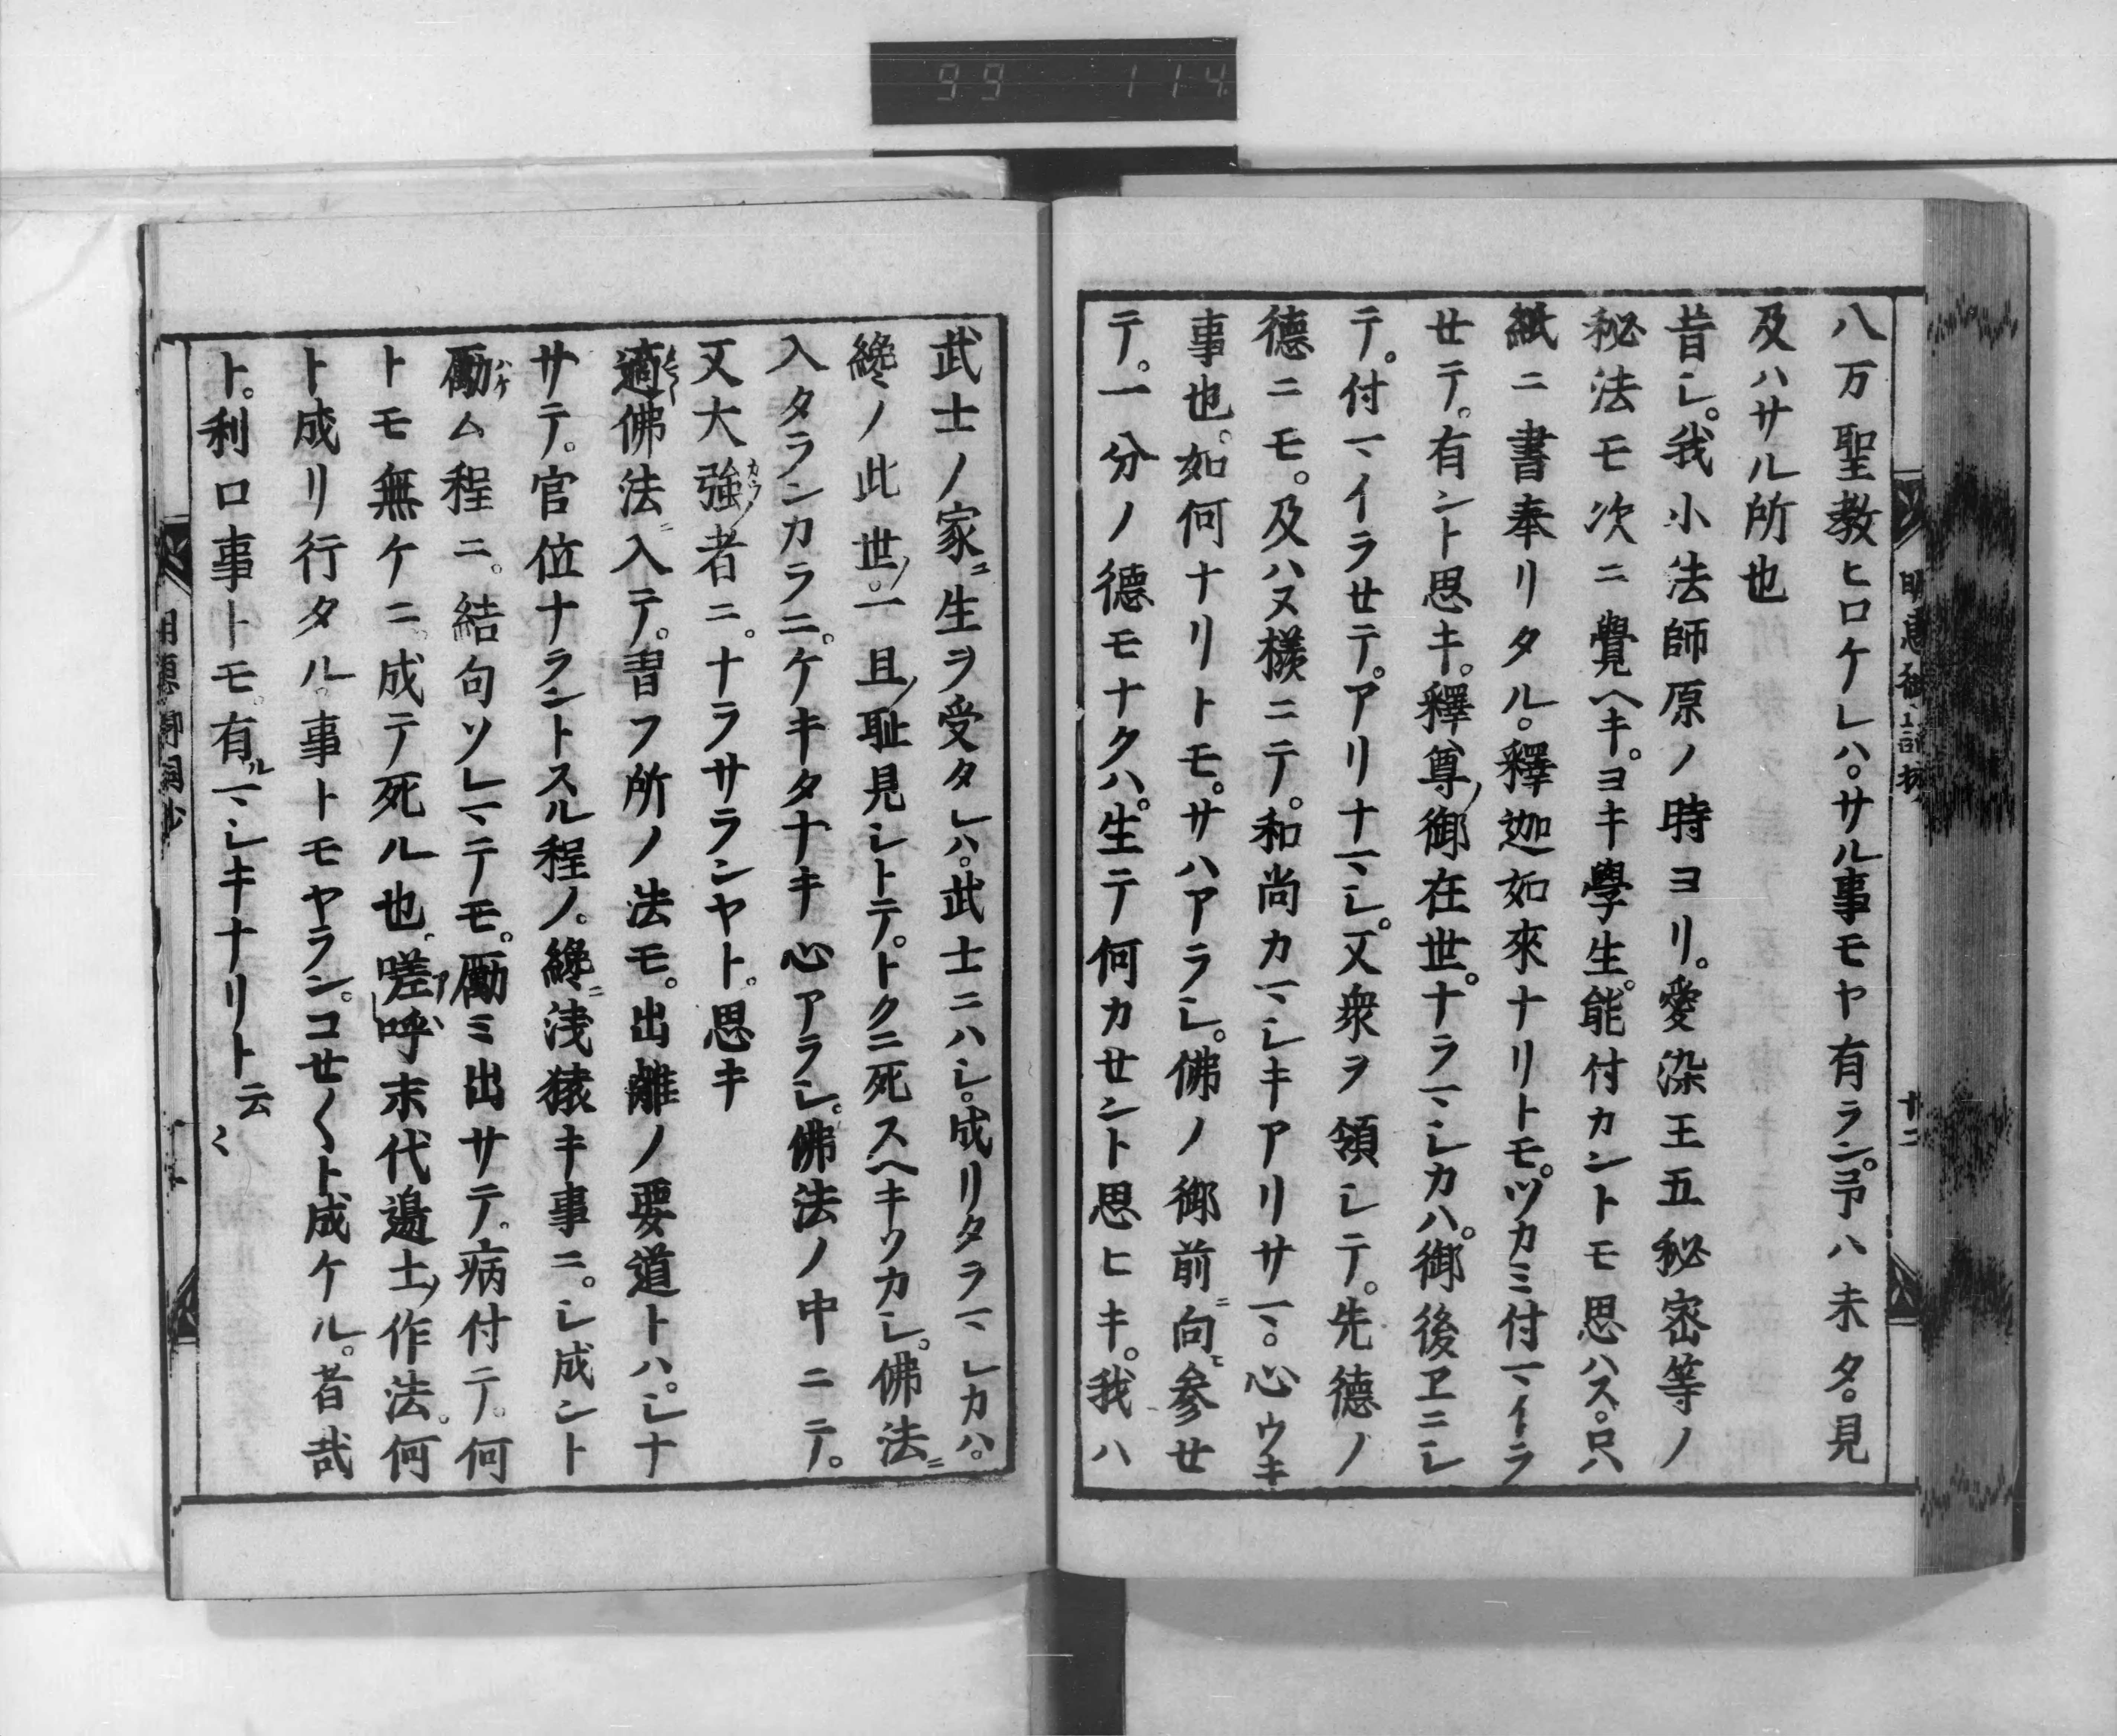 99 114
八万聖教ヒロケレハ。サル事モヤ有ラン。予ハ未タ。見
及ハサル所也
昔シ。我小法師原ノ時ヨリ。愛染王五秘密等ノ
秘法モ次ニ覺ヘキ。ヨキ學生。能付カントモ思ハス。只
紙ニ書奉リタル。釋迦如來ナリトモ。ツカミ付マイラ
せテ。有ント思キ。釋尊ノ御在世。ナラマシカハ。御後ヱニシ
テ。付マイラせテ。アリナマシ。又衆ヲ領シテ。先德ノ
德ニモ。及ハヌ樣ニテ。和尚カマシキアリサマ。心ウキ
事也。如何ナリトモ。サハアラシ。佛ノ御前ニ向ヒ参せ
テ。一分ノ德モナクハ。生テ何カせント思ヒキ。我ハ
武士ノ家ニ生ヲ受タレハ。武士ニハシ。成リタラマシカハ。
纔ノ此世ノ。一旦ノ耻見シトテ。トクニ死スヘキソカシ。佛法ニ
入タランカラニ。ケキタナキ心アラシ。佛法ノ中ニテ。
又大強ノ者ニ。ナラサランヤト。思キ
適佛法ニ入テ。習フ所ノ法モ。出離ノ要道トハ。シナ
サテ。官位ナラントスル程ノ。纔ニ浅猿キ事ニ。シ成ント
勵ム程ニ。結句ソレマテモ。勵ミ出サテ。病付テ。何
トモ無ケニ。成テ死ル也。嗟呼末代邊土ノ作法。何
ト成リ行タル。事トモヤラン。コせ〱ト成ケル。者哉
ト。利口事トモ。有ルマシキナリト云〻